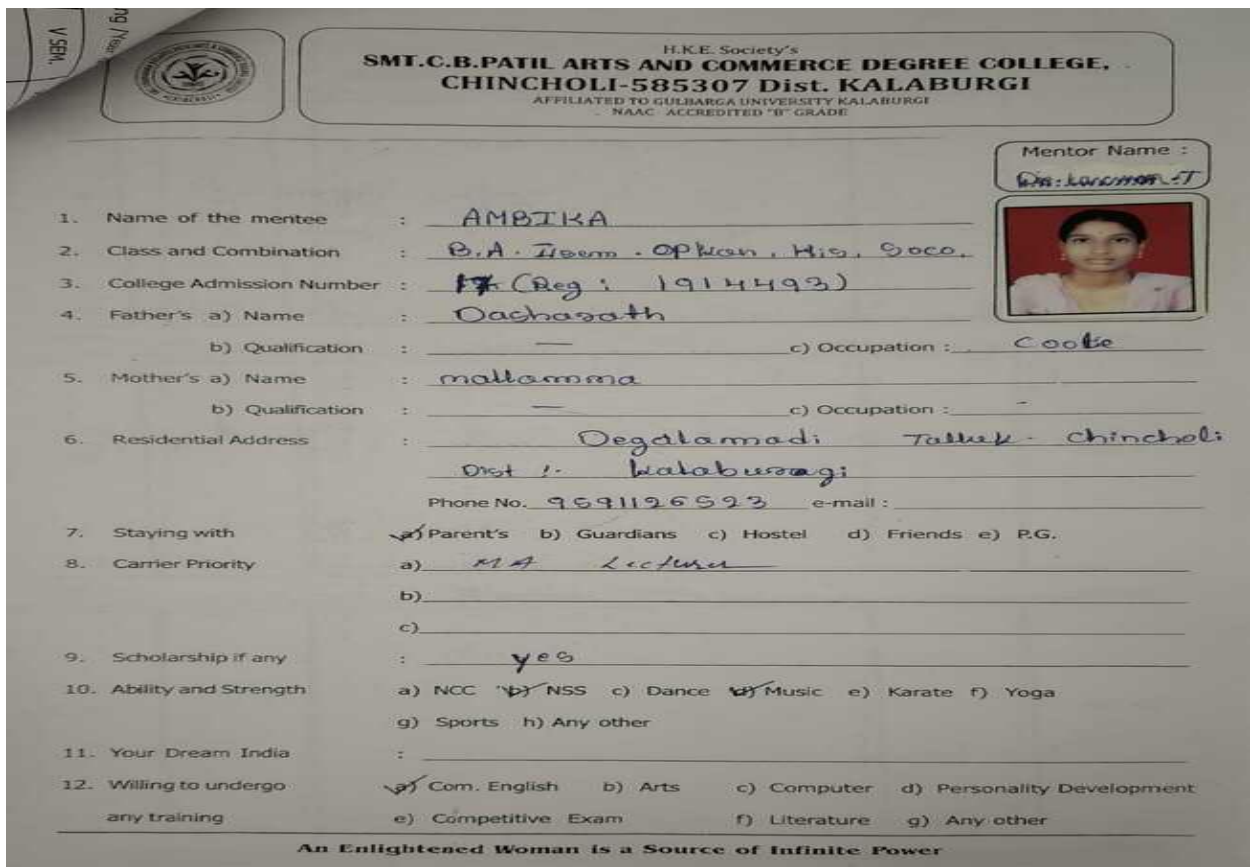 V SEM.
H.K.E. Society's
SMT.C.B.PATIL ARTS AND COMMERCE DEGREE COLLEGE,
CHINCHOLI-585307 Dist. KALABURGI
AFFILIATED TO GULBARGA UNIVERSITY KALABURGI
NAAC ACCREDITED "B" GRADE
Mentor Name :
1. Name of the mentee : AMBIKA
2. Class and Combination : B.A. IIsem. Opkan, His, Soco,
3. College Admission Number : (Reg : 1914493)
4. Father's a) Name : Dasharath
b) Qualification : — c) Occupation : Coolie
5. Mother's a) Name : mallamma
b) Qualification : — c) Occupation : -
6. Residential Address : Degalamadi Talluk - Chincholi
Dist :- kalaburagi
Phone No. 9591126523 e-mail :
7. Staying with a) Parent's b) Guardians c) Hostel d) Friends e) P.G.
8. Carrier Priority a) MA Lecturer
b)
c)
9. Scholarship if any : yes
10. Ability and Strength a) NCC b) NSS c) Dance d) Music e) Karate f) Yoga
g) Sports h) Any other
11. Your Dream India :
12. Willing to undergo a) Com. English b) Arts c) Computer d) Personality Development
any training e) Competitive Exam f) Literature g) Any other
An Enlightened Woman is a Source of Infinite Power